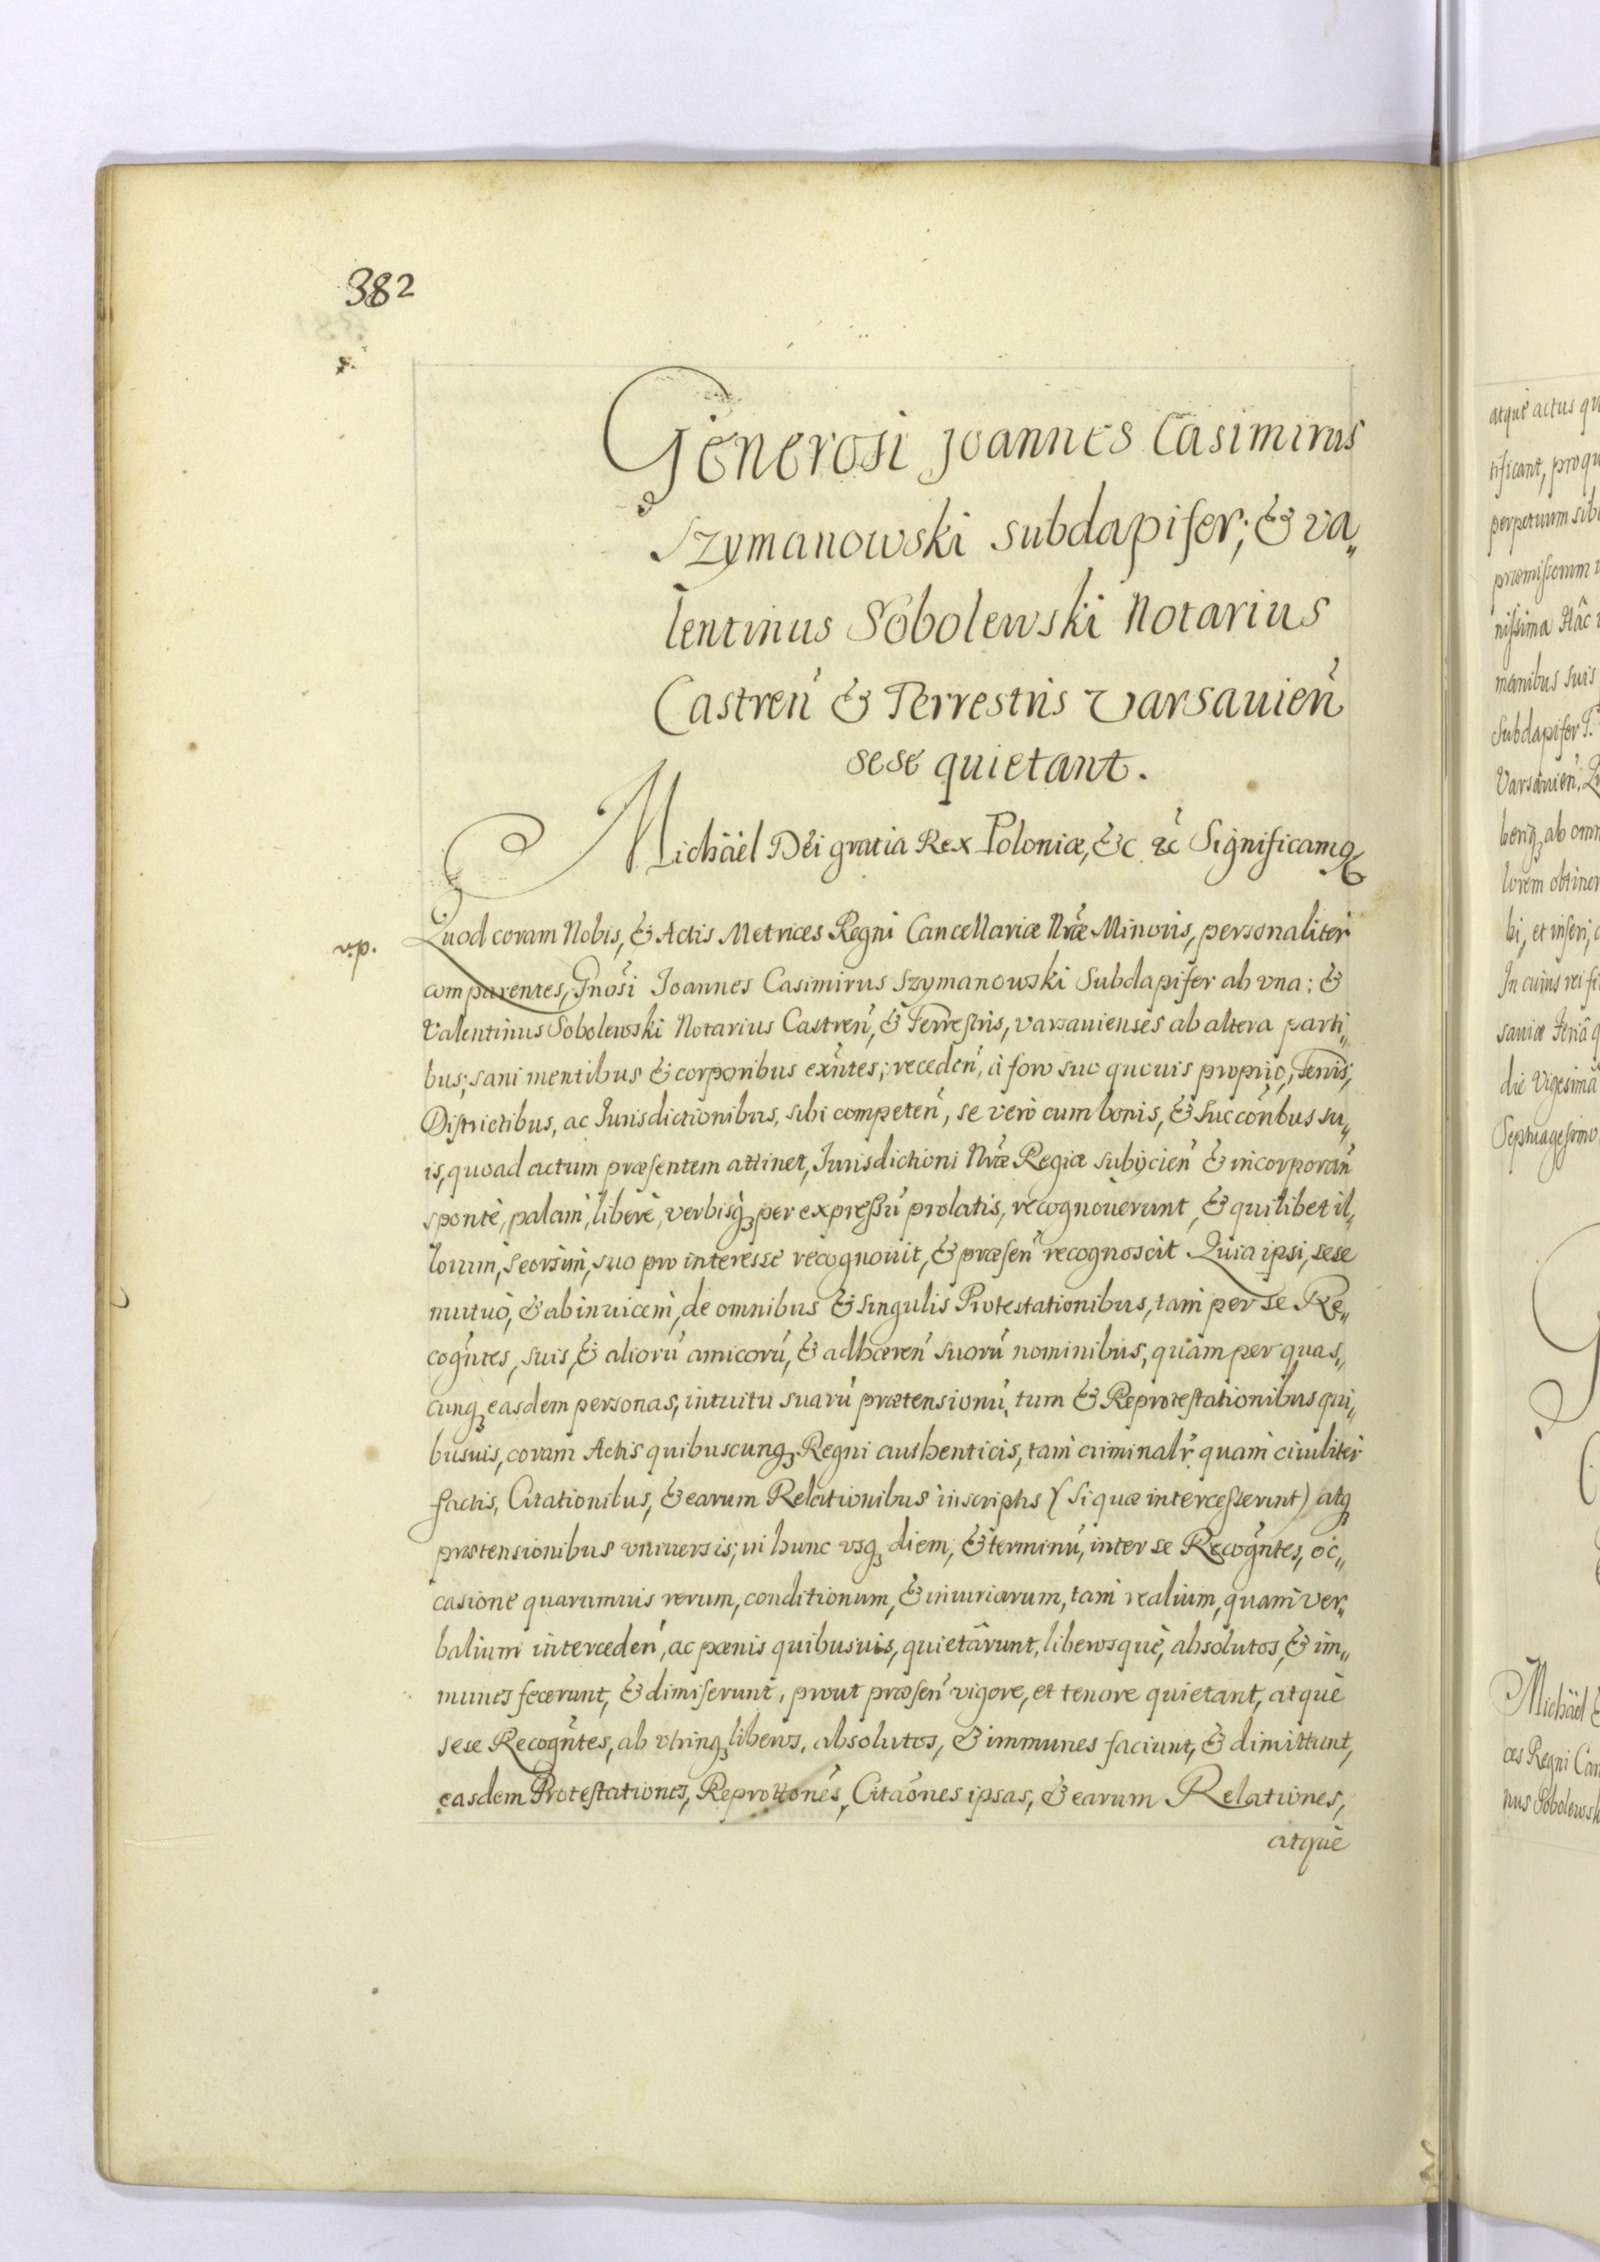 382
Generosi Joannes Casimirus
Szymanowski Subdapifer; & Va„
lentinus Sobolewski Notarius
Castren̄ & Terrestris Varsavien̄
sese quietant.
Michäel Dei gratia Rex Poloniæ, &c &c Significamq
v.p.
Quod coram Nobis, & Actis Metrices Regni Cancellariæ Nr̃æ Minoris, personaliter
comparentes, Gnõsi Joannes Casimirus Szymanowski Subdapifer ab vna: &
Valentinus Sobolewski Notarius Castren̄, & Terrestris, varsauienses ab altera parti„
bus; sani mentibus & corporibus exñtes; receden̄, à foro suo quouis proprio, Terris,
Districtibus, ac Iurisdictionibus, sibi competen̄, se verò cum bonis, & Succõribus su„
is, quoad actum præsentem attinet, Iurisdictioni Nr̃æ Regiæ subijcien̄ & incorporan̄
sponte, palam, libere, verbisq; per expressũ prolatis, recognouerunt, & quilibet il„
lorum, seorsim, suo pro interesse recognouit, & præsen̄ recognoscit Quia ipsi, sese
mutuò, & abinuicem, de omnibus & singulis Protestationibus, tam per se Re„
cogñtes, suis, & aliorũ amicorũ, & adhæren̄ suorũ nominibus, quàm per quas„
cunq; easdem personas, intuitu suarũ prætensionũ, tum & Reprotestationibus qui„
busuis, coram Actis quibuscunq; Regni authenticis, tam criminalr̃ quam ciuiliter
factis, Citationibus, & earum Relationibus inscriptis (si quæ intercesserint) atq;
prætensionibus vniuersis; in hunc vsq; diem, & terminũ, inter se Recogñtes, oc„
casione quarumuis rerum, conditionum, & iniuriarum, tam realium, quam ver„
balium interceden̄, ac pœnis quibusuis, quietârunt, liberosquè, absolutos, & im„
munes fecerunt, & dimiserunt, prout præsen̄ vigore, et tenore quietant, atquè
sese Recogñtes, ab vtrinq; liberos, absolutos, & immunes faciunt, & dimittunt,
easdem Protestationes, Reprottõnes, Citãones ipsas, & earum Relationes,
atquè
atquè actus qu
tificant, pro qu
perpetuum sibi
præmissorum
nissima Hâc
manibus suis
Subdapifer T.
Varsauien̄,
ab omn
lorem obtiner
bi, et inseri,
In cuius rei fi
sauiæ
die Vigesima
Septuagesimo
Michäel &
ces Regni Can
nus Sobolewsk